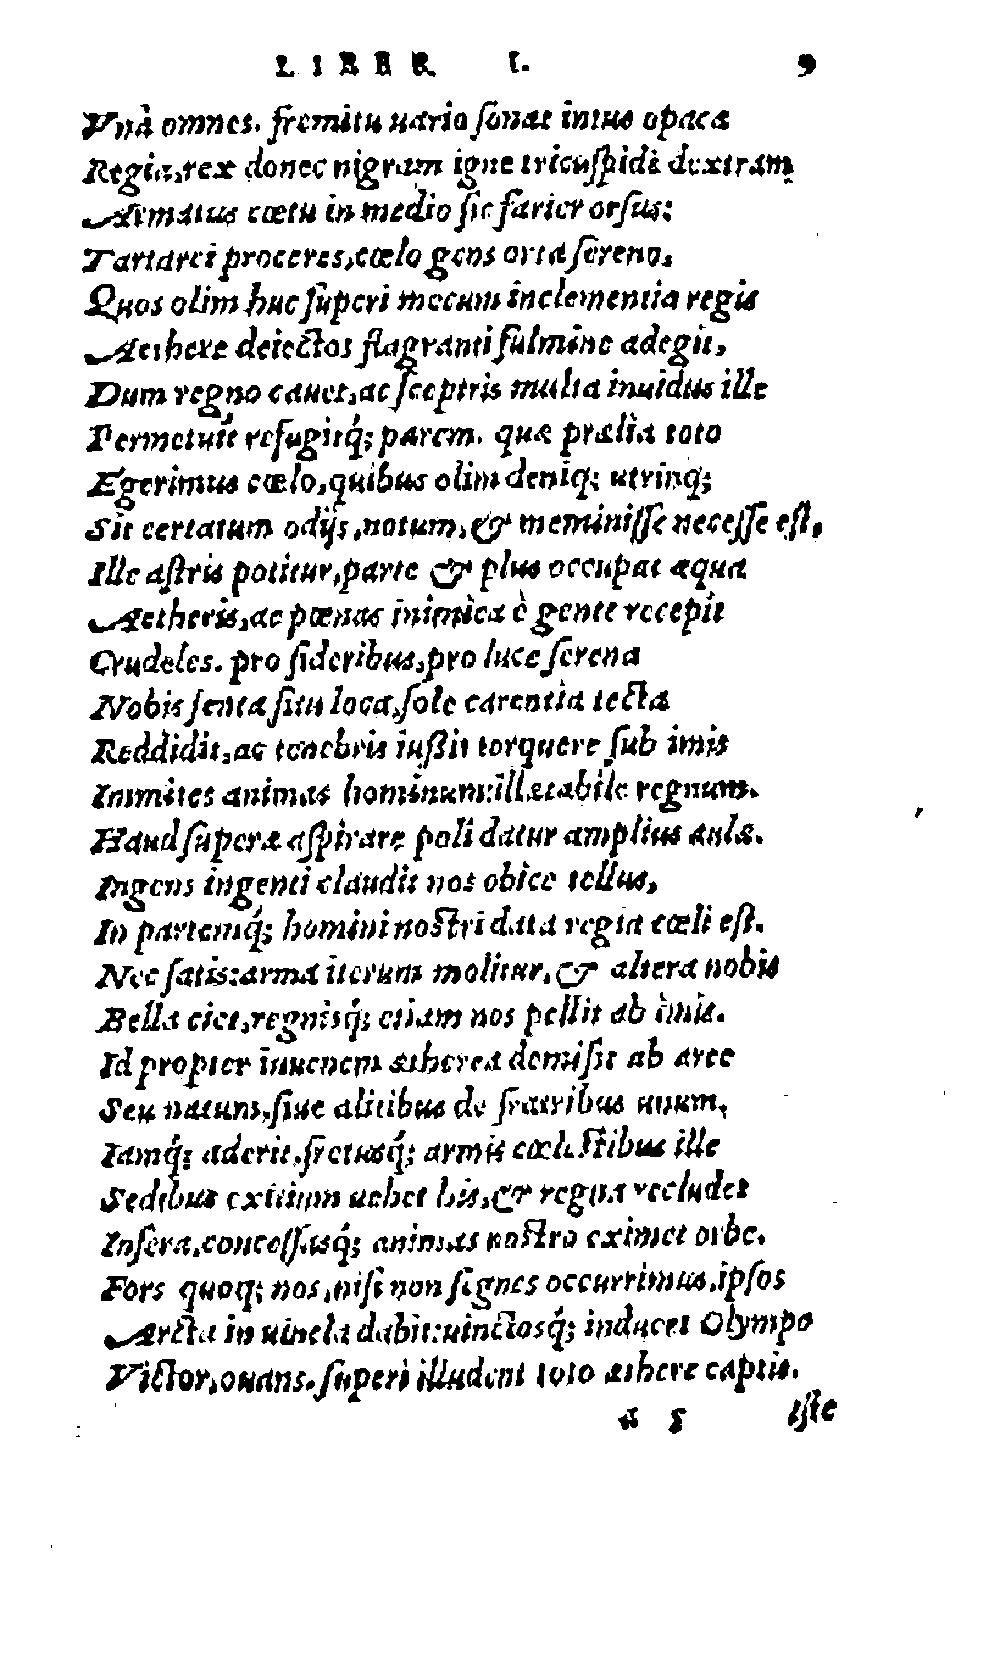 LIBER I. 9
Vnà omnes. fremitu uario ſonat intus opaca
Regia, rex donec nigram igne tricuſpidē dextram
Armatus cœtu in medio ſic farier orſus:
Tartarei proceres, cœlo gens orta ſereno,
Quos olim huc ſuperi mecum inclementia regis
Aethere deiectos flagranti fulmine adegit,
Dum regno cauet, ac ſceptris multa inuidus ille
Permetuit refugitq́; parem. quæ prælia toto
Egerimus cœlo, quibus olim deniq; utrinq;
Sit certatum odijs, notum, & meminiſſe neceſſe eſt.
Ille aſtris potitur, parte & plus occupat æqua
Aetheris, ac pœnas inimica è gente recepit
Crudeles. pro ſideribus, pro luce ſerena
Nobis ſenta ſitu loca, ſole carentia tecta
Reddidit, ac tenebris iußit torquere ſub imis
Immites animas hominum: illætabile regnum.
Haud ſuperæ aſpirare poli datur amplius aulæ.
Ingens ingenti claudit nos obice tellus,
In partemq́; homini noſtri data regia cœli eſt.
Nec ſatis: arma iterum molitur, & altera nobis
Bella ciet, regnisq́; etiam nos pellit ab imis.
Id propter iuuenem ætherea demiſit ab arce
Seu natum, ſiue alitibus de fratribus unum,
Iamq́; aderit, fretusq́; armis cœleſtibus ille
Sedibus exitium uehet his, & regna recludet
Infera, conceſſasq́; animas noſtro eximet orbe.
Fors quoq; nos, niſi non ſegnes occurrimus, ipſos
Arcta in uincla dabit: uinctosq́; inducet Olympo
Victor, ouans. ſuperi illudent toto æthere captis.
a 5 iſte